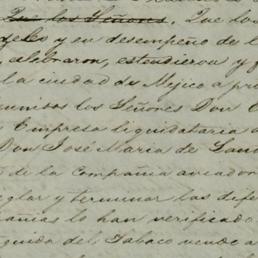 los Señores. Que los
y en desempeño de l
celebraron, estendieron y f
la ciudad de Mejico a pri
reunidos los Señores Don
Empresa liquidataria
Don José Maria de Lan
de la Compañia aviador
eglar y terminar las dife
añias lo han verificado
guida del Tabaco vende a